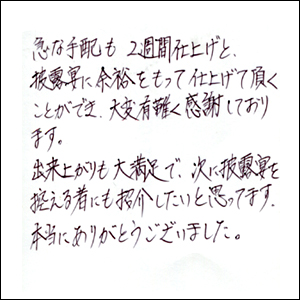 急な手配も 2週間仕上げと、
披露宴に余裕をもって仕上げて頂く
ことができ、大変有難く感謝しており
ます。
出来上がりも大満足で、次に披露宴を
控える者にも紹介したいと思ってます。
本当にありがとうございました。